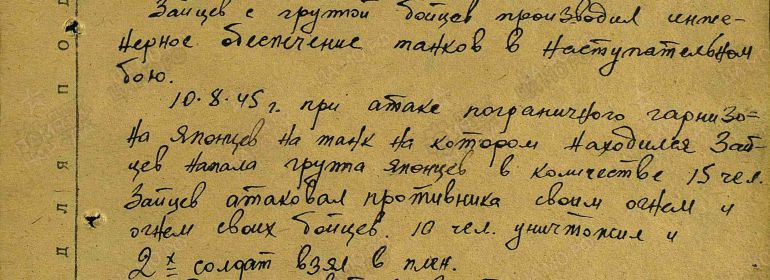 Зайцев с группой бойцов производил инже-
нерное обеспечение танков в наступательном
бою.
10.8.45 г. при атаке пограничного гарнизо-
на японцев на танк на котором находился Зай-
цев напала группа японцев в количестве 15 чел.
Зайцев атаковал противника своим огнем и
огнем своих бойцов. 10 чел. уничтожил и
2х солдат взял в плен.
для под